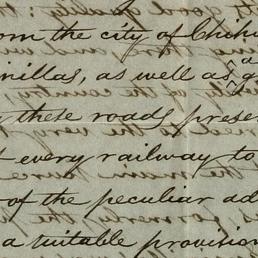 om the city of Chihu
inillas, as well as a
these roads presen
t every railway to
of the peculiar ad
a suitable provision